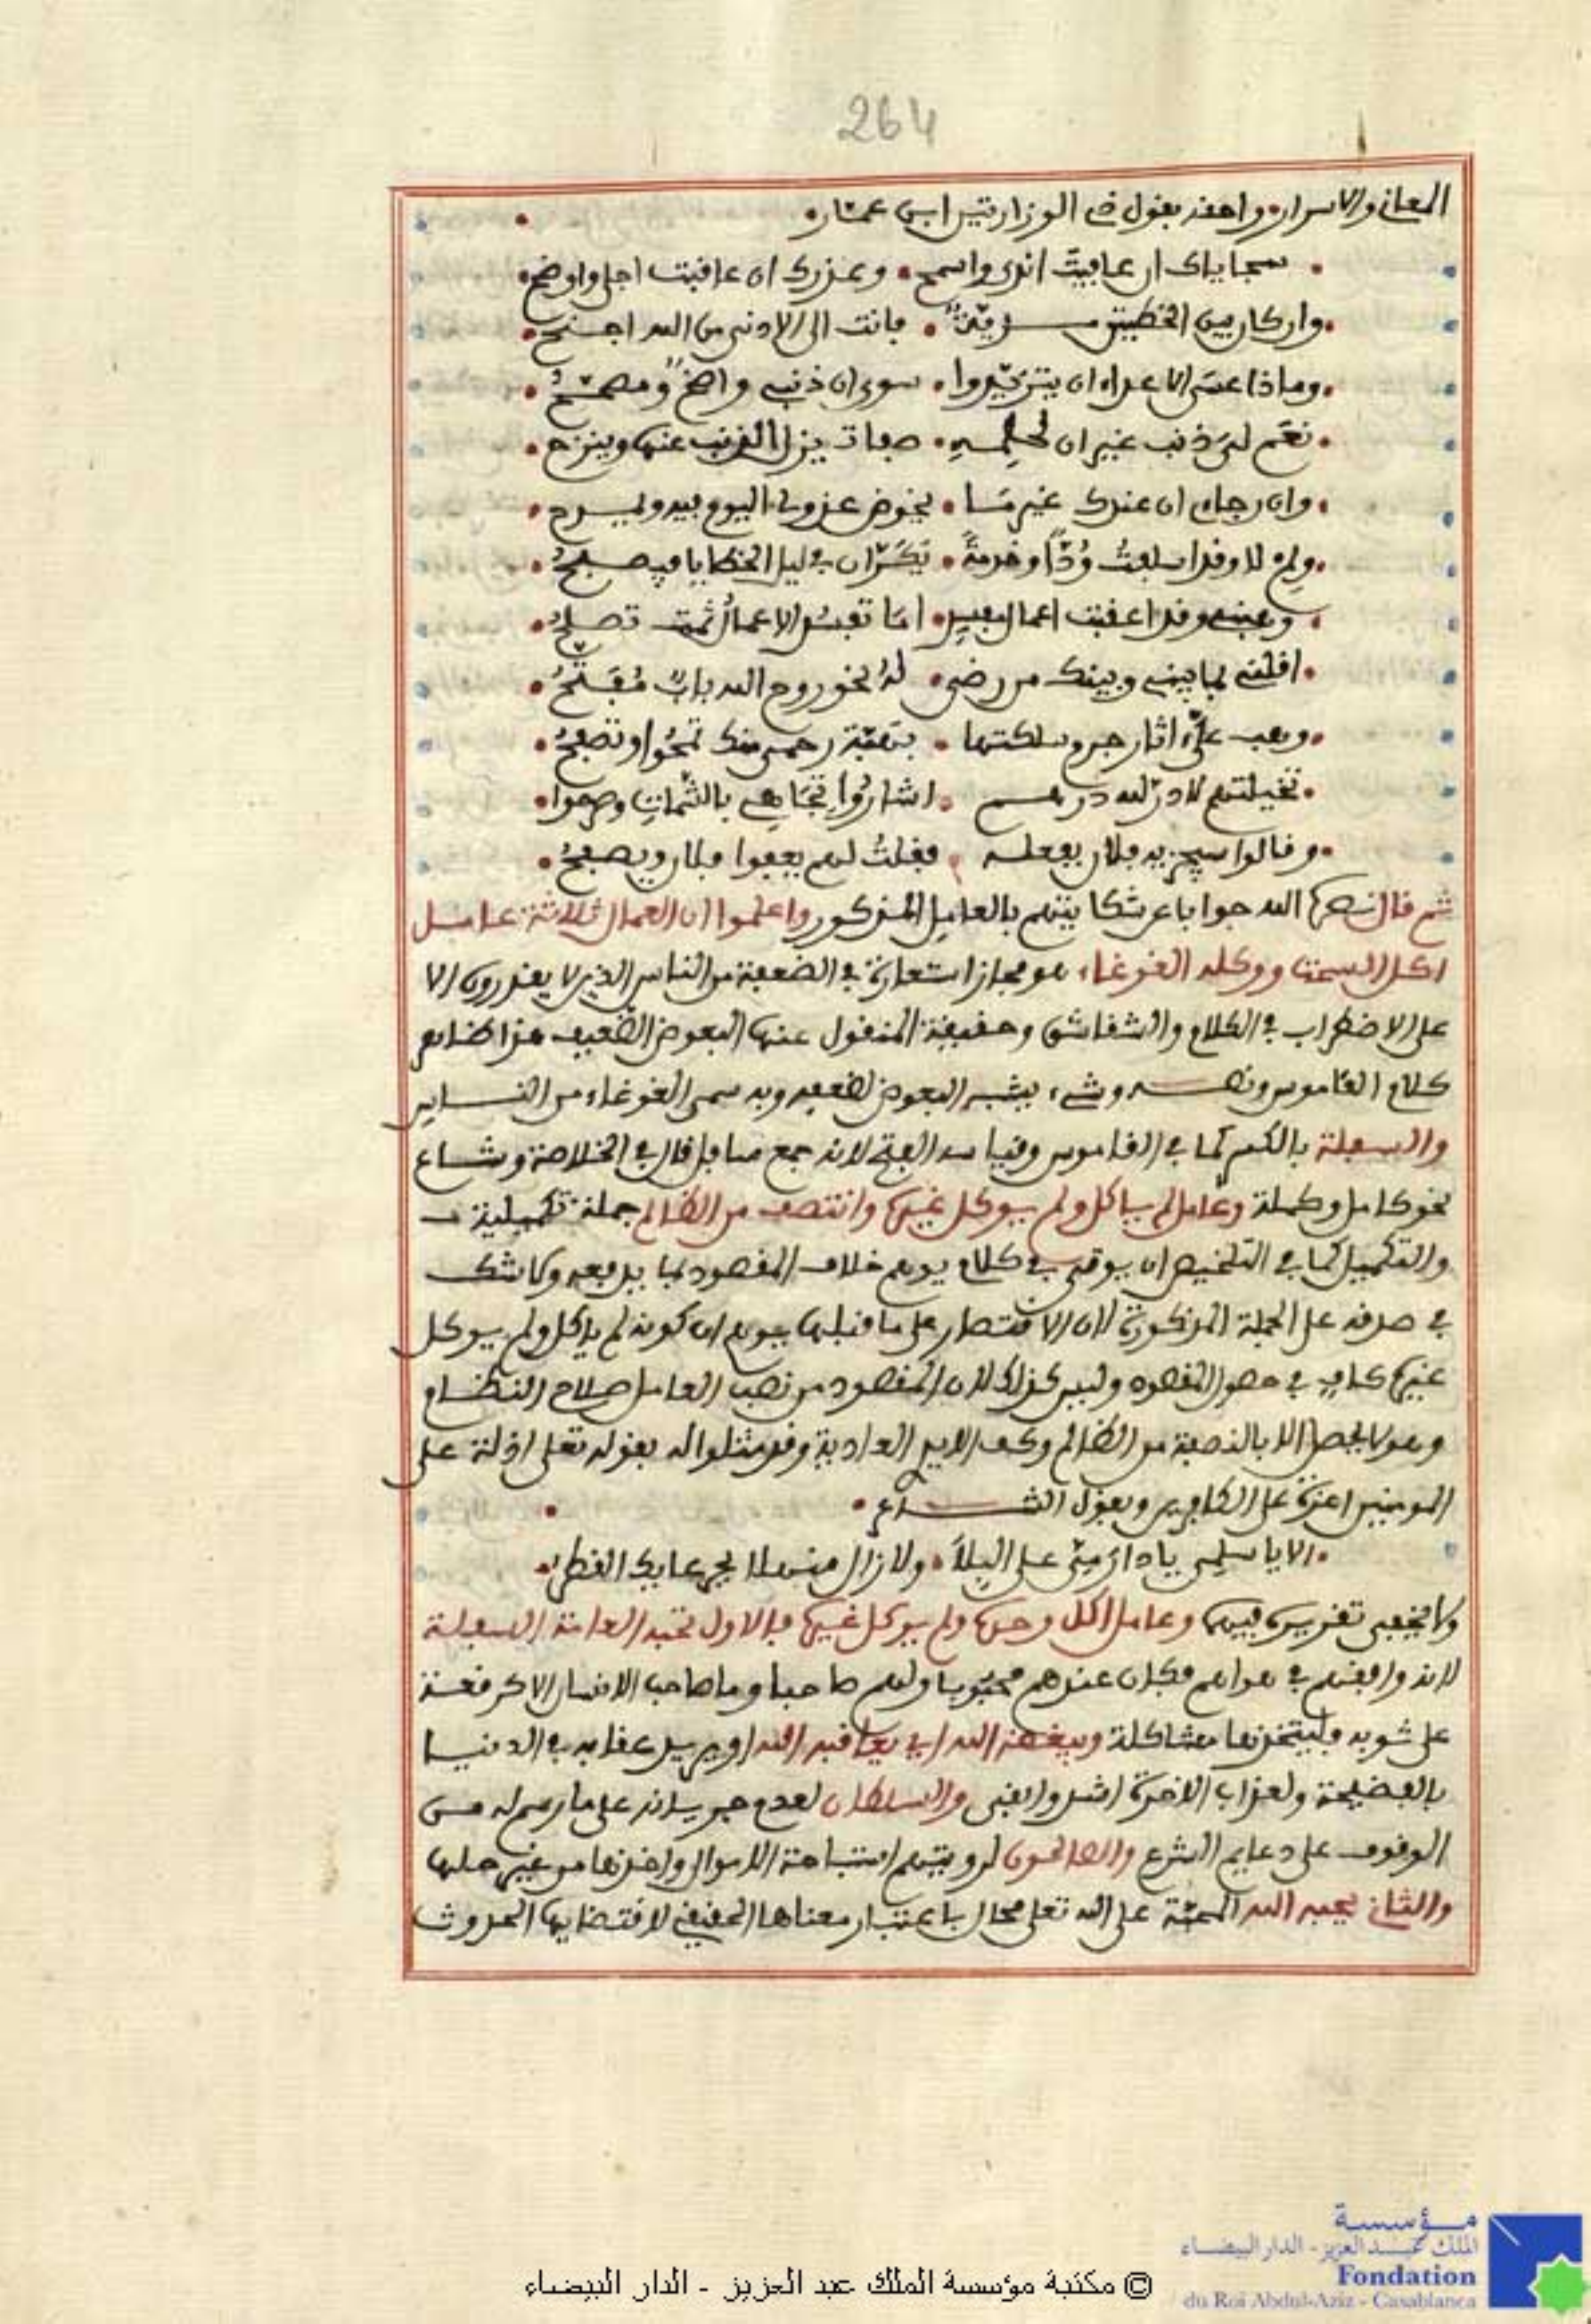 264
المعاني والاسرار واصغ بقول ذي الوزارتين ابن عمار
سجاياك ان عافيت اندى واسمح وعذرك ان عاقبت اجلى واوضح
وان كان بين الخطتين مزية فانت الى الادنى من الله اجنح
وماذا عسى الاعداء ان يتزيدوا سوى ان ذنبي واضح ومصحح
نعم لي ذنب غير ان لحلمه صفات يزل الذنب عنها وينزح
وان رجاي ان عندك غير ما يخوض عدوي اليوم فيه ويمرح
ولم لا وقد اسلفت ودا وخدمة يكران في ليل الخطايا فيصبح
وهبني وقد اعقبت اعمال مفسد اما تفسد الاعمال ثمت تصلح
اقلني بما بيني وبينك من رضى له نحو روح الله باب مفتح
وعف على اثار جرم سلكتها بنفحة رحمى منك تمحوا وتصفح
تخيلتهم لا در لله درهم اشاروا تجاهي بالشمات وصرحوا
وقالوا سيجزيه فلان بفعله فقلت لهم يعفوا فلان ويصفح
ثم قال نصره الله جوابا عن شكايتهم بالعامل المذكور واعلموا ان العمال ثلاثة عامل
اكل السحت ووكله الغوغاء هو مجاز استعارة في الضعفة من الناس الذين لا يقدرون الا
على الاضطراب في الكلام والشقاشق وحقيقة المنقول عنها البعوض الضعيف هذا ظاهر
كلام القاموس ونصه وشيء يشبه البعوض لضعفه وبه سمى الغوغاء من الناس
والسفلة بالكسر كما في القاموس وقياسه الفتح لانه جمع سافل قال في الخلاصة وشاع
نحو كامل وكملة وعامل لم ياكل ولم يوكل غيره وانتصف من الظالم جملة تكميلية
والتكميل كما في التلخيص ان يوتى في كلام يوهم خلاف المقصود بما يدفعه ولا شك
في صدقه على الجملة المذكورة لان الاقتصار على ما قبلها يوهم ان كونه لم ياكل ولم يوكل
غيره كاف في حصول المقصود وليس كذلك لان المقصود من نصب العامل صلاح النظام
وهو لا يحصل الا بالنصفة من الظالم وكف الايدي العادية وقد مثلوا له بقوله تعلى اذلة على
المومنين اعزة على الكافرين وبقول الشاعر
الا يا سلمى يا دار مى على البلا ولا زال منهلا بجرعايك القطر
ولا يخفى تقريره فيهما وعامل اكل وحده ولم يوكل غيره فالاول تحبه العامة السفلة
لانه وافقهم في هواهم فكان عندهم محبوبا ولهم صاحبا وما صاحب الانسان الا كرقعة
على ثوبه فليتخذها مشاكلة ويبغضه الله اي يعاقبه الله او يريد عقابه في الدنيا
بالفضيحة ولعذاب الاخرة اشد وابقى والسلطان لعدم جريانه على ما رسم له من
الوقوف على دعايم الشرع والصالحون لرويتهم استباحة الاموال واخذها من غير حلها
والثاني يحبه الله المحبة على الله تعلى محال باعتبار معناها الحقيقي لاقتضايها الحدوث
مؤسسة
الملك عبد العزيز - الدار البيضاء
Fondation
du Roi Abdul-Aziz - Casablanca
© مكتبة مؤسسة الملك عبد العزيز - الدار البيضاء